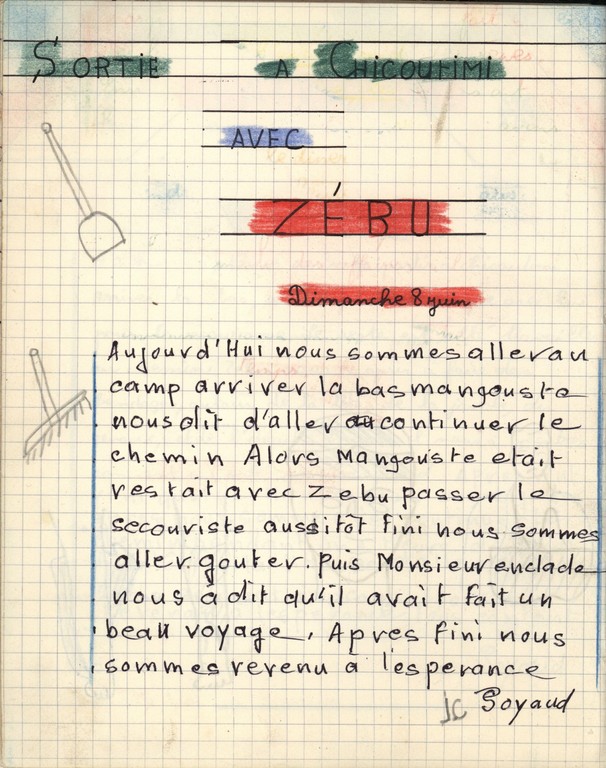 SORTIE A CHICOUTIMI
AVEC
ZÉBU
Dimanche 8 juin
Aujourd'Hui nous sommes aller au
camp arriver la bas mangouste
nous dit d'aller continuer le
chemin Alors Mangouste etait
restait avec Zebu passer le
secouriste aussitôt fini nous sommes
aller gouter. Puis Monsieur enclade
nous a dit qu'il avait fait un
beau voyage. Apres fini nous
sommes revenu à l'esperance
JC Soyaud